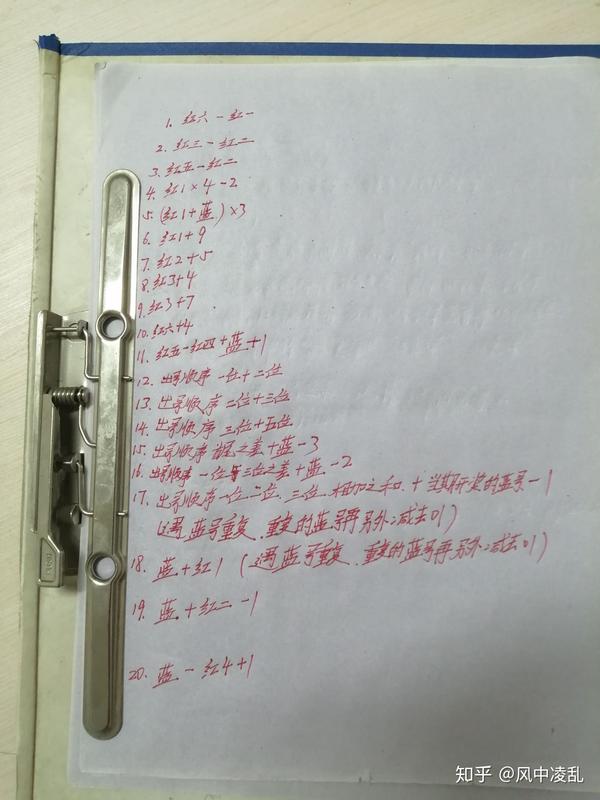 1. 红六一红一
2. 红三一红二
3. 红五一红二
4. 红1×4-2
5. (红1+蓝)×3
6. 红1+9
7. 红2+5
8. 红3+4
9. 红3+7
10. 红六+4
11. 红五-红四+蓝+1
12. 出球顺序一位+二位
13. 出球顺序二位+三位
14. 出球顺序三位+五位
15. 出球顺序 之差+蓝-3
16. 出球顺序一位与三位之差+蓝-2
17. 出球顺序一位、二位、三位相加之和+当期开奖的蓝号-1
(遇蓝号重复、重复的蓝号再另外减去01)
18. 蓝+红1(遇蓝号重复、重复的蓝号再另外减去01)
19. 蓝+红二-1
20. 蓝-红4+1
知乎 @风中凌乱